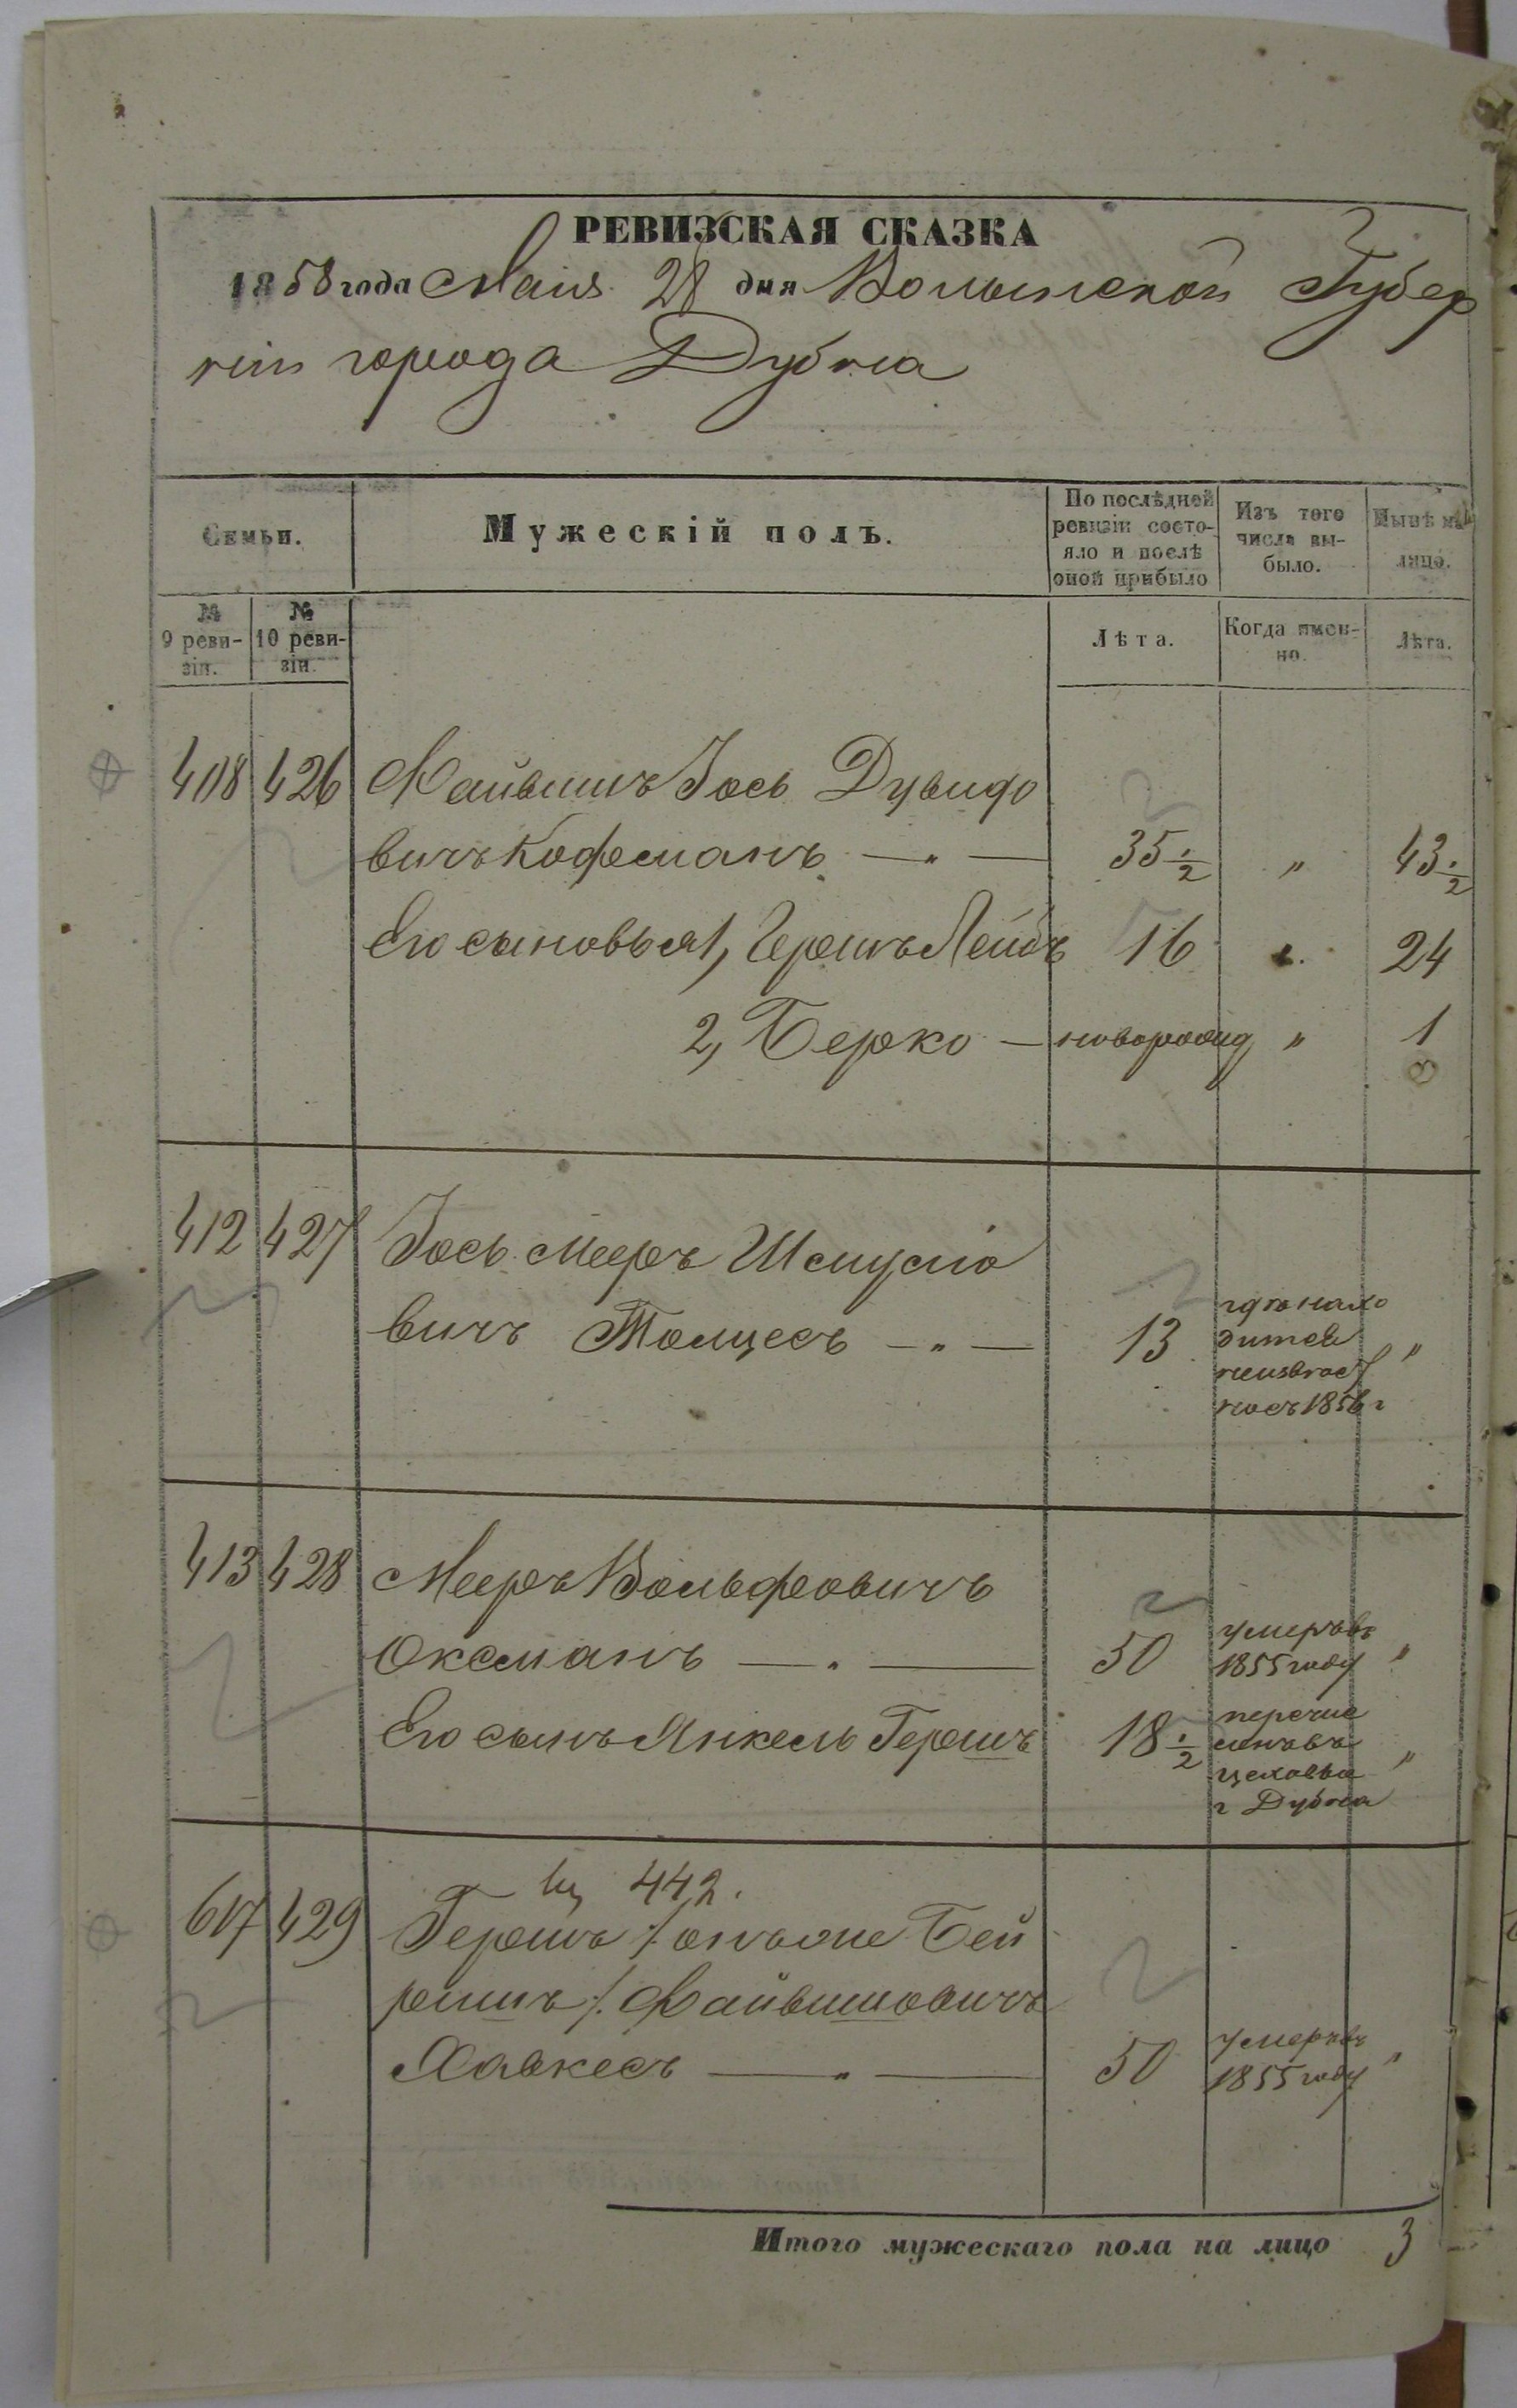 РЕВИЗСКАЯ СКАЗКА
1858 года Мая 28 дня Волынской Губер
ніи города Дубна
Семьи.
Мужескій полъ.
По послѣдней ревизіи состо-
яло и послѣ оной прибыло
Изъ того числа вы-
было.
Нынѣ на лицо.
№ 9 реви-
зіи.
№ 10 реви-
зіи.
Лѣта.
Когда имен-
но.
Лѣта.
408 426 Файвишъ Іось Дувидо
вичъ Кофеманъ — " — 35 1/2 " 43 1/2
Его сыновья 1, Гершъ Лейбъ 16 " 24
2, Берко — новорожд " 1
3
412 427 Іось Мееръ Шмуліо
вичъ Толцесъ — " — 13 "
гдѣ нахо
дитса
неизвѣст
но съ 1856 г
413 428 Мееръ Вольфовичъ
Оксманъ — " — 50 умеръ въ "
1855 году
Его сынъ Янкель Гершъ 18 1/2 "
перечис
ленъ въ
цеховые
г Дубна
442.
617 429 Гершъ /: онъ же Бей
ришъ /: Файвишовичъ
Хавкесъ — " — 50 умеръ въ "
1855 году
Итого мужескаго пола на лицо 3